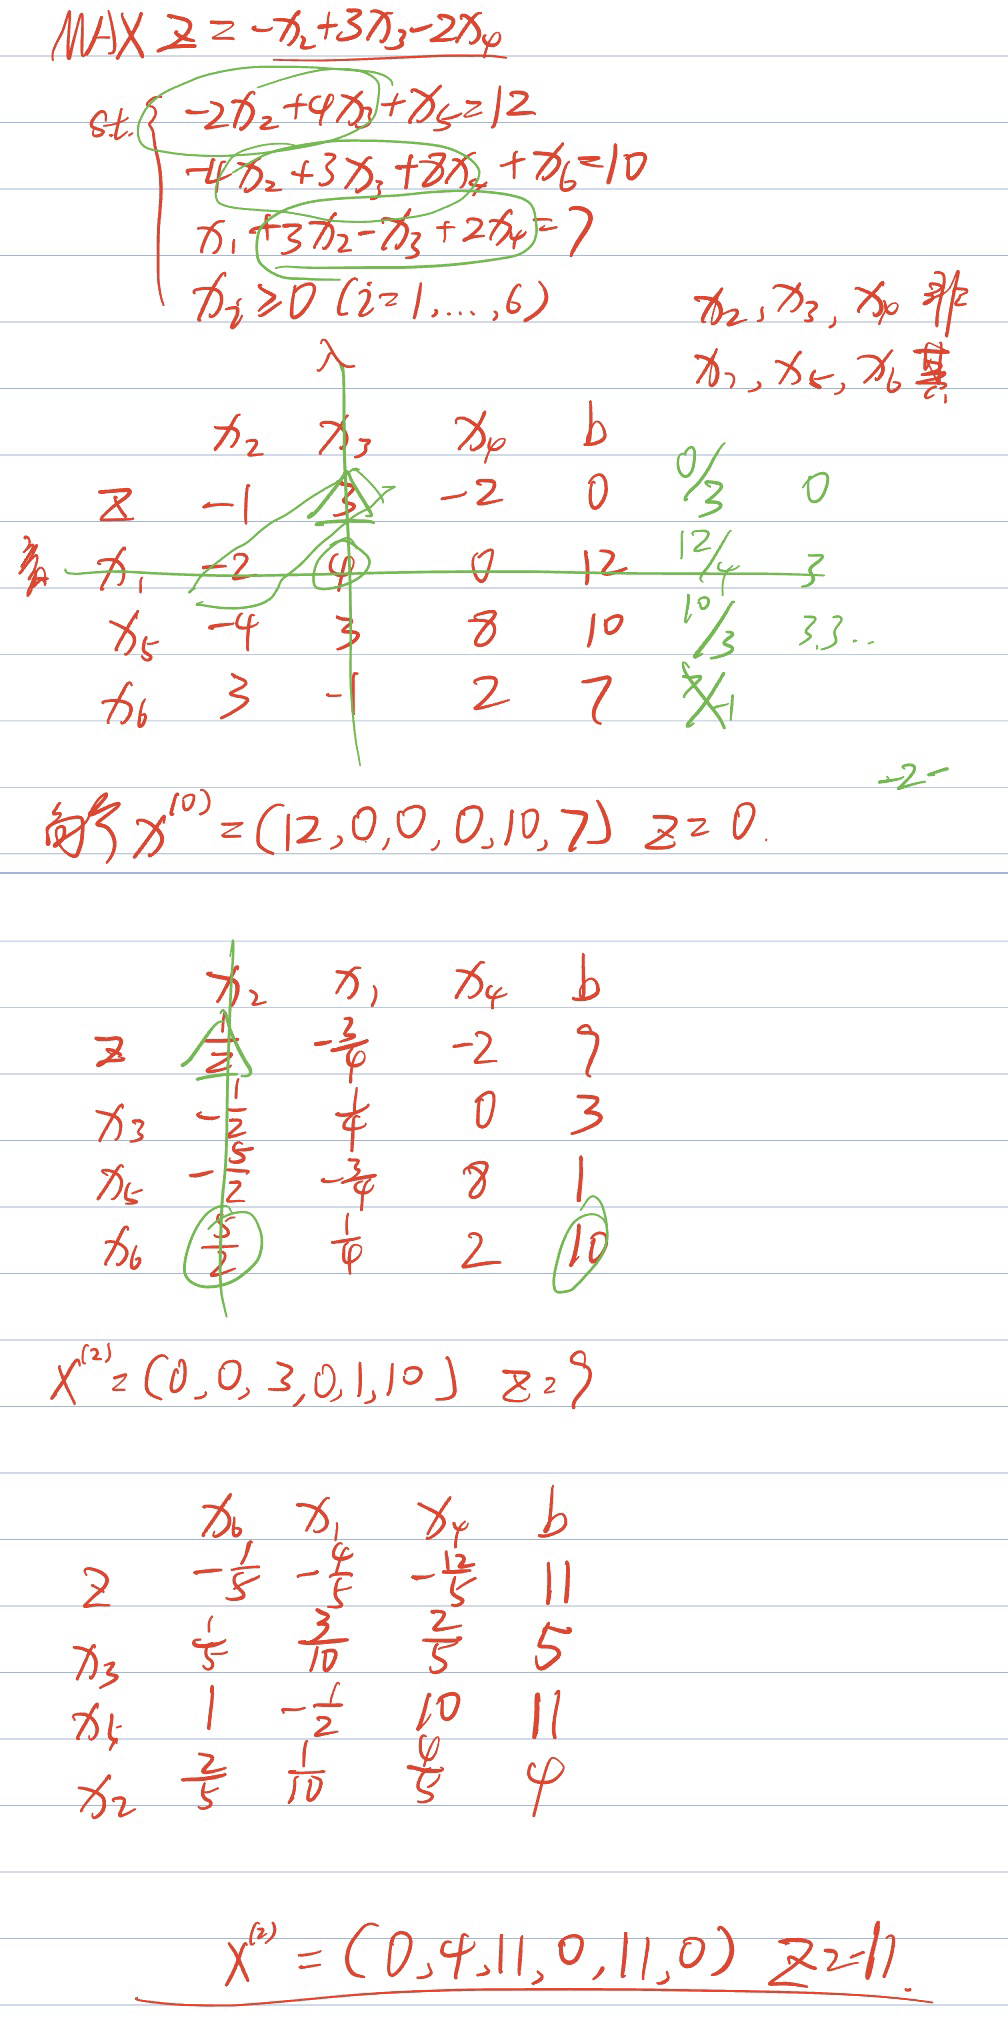 MAX Z = -x₂+3x₃-2x₄
st. { -2x₂+4x₃+x₅=12
-4x₂+3x₃+8x₄+x₆=10
x₁+3x₂-x₃+2x₄=7
xᵢ≥0 (i=1,...,6)
x₂,x₃,x₄ 非
x₁,x₅,x₆ 基
入
x₂ x₃ x₄ b
Z -1 3 -2 0 0/3 0
x₁ -2 4 0 12 12/4 3
x₅ -4 3 8 10 10/3 3.3..
x₆ 3 -1 2 7
-2-
x⁽⁰⁾=(12,0,0,0,10,7) z=0.
x₂ x₁ x₄ b
z 1/2 -3/4 -2 9
x₃ -1/2 1/4 0 3
x₅ -5/2 -3/4 8 1
x₆ 5/2 1/4 2 10
X⁽²⁾=(0,0,3,0,1,10) z=9
x₆ x₁ x₄ b
Z -1/5 -4/5 -12/5 11
x₃ 1/5 3/10 2/5 5
x₅ 1 -1/2 10 11
x₂ 2/5 1/10 4/5 4
X⁽²⁾=(0,4,11,0,11,0) Z=11.